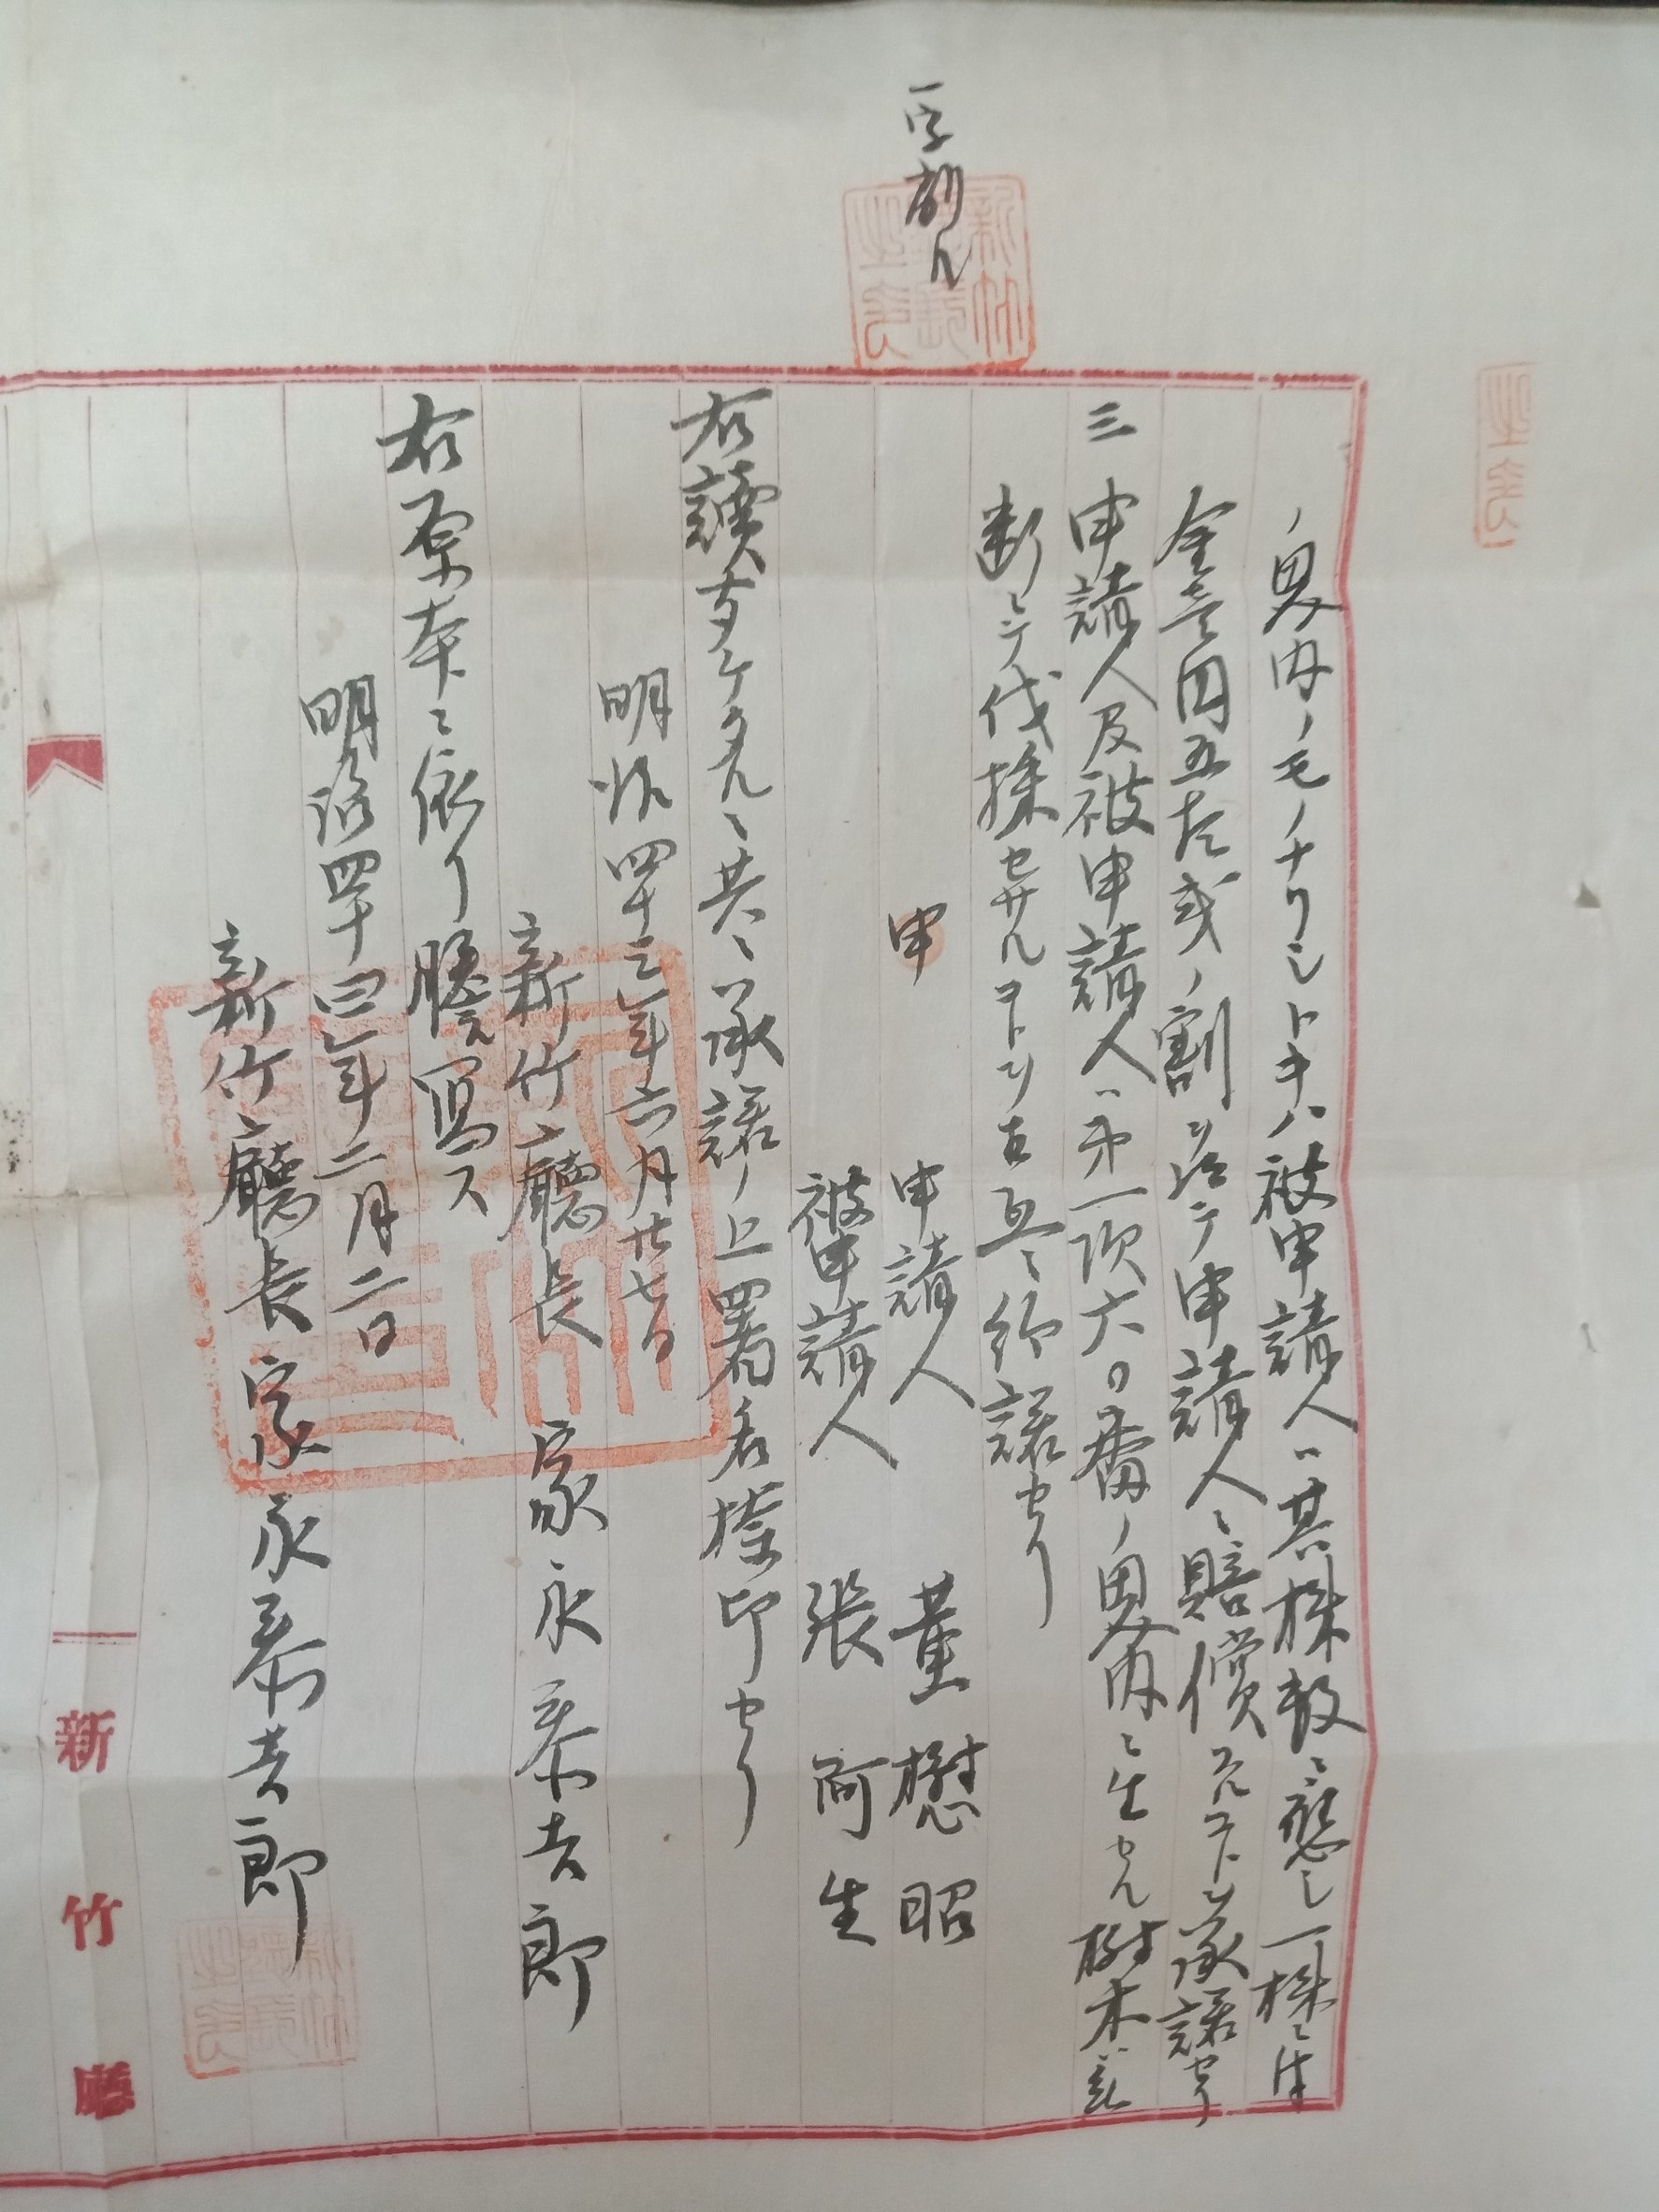 一字削ル
ノ界内ノモノナリシトキハ被申請人ハ其株数ニ應シ一株ニ付
金壹円五拾戔ノ割ヲ以テ申請人ニ賠償スルコトヲ承諾セリ
三 申請人及被申請人ハ第一項六〇番ノ界内ニ生セル樹木ハ
断シテ伐採セサルコトヲ右互ニ約諾セリ
申
申請人 董懋昭
被申請人 張阿生
右讀聞ケタルニ共ニ承諾ノ上署名捺印セリ
明治四十三年六月廿七日
新竹廳長 家永泰吉郎
右原本ニ依リ謄寫ス
明治四十四年二月二日
新竹廳長 家永泰吉郎
新竹廳